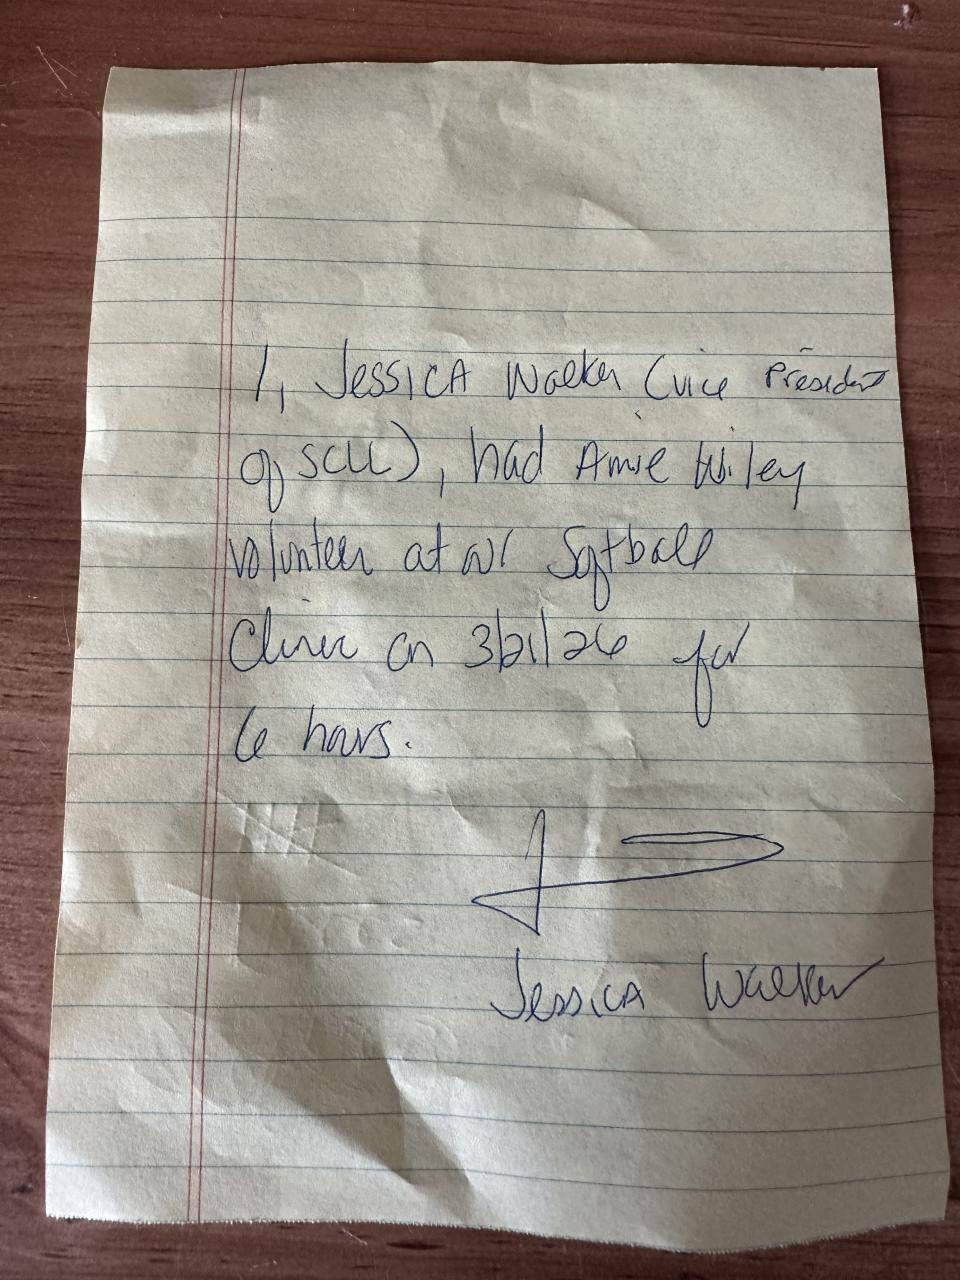 I, Jessica Walker (vice President
of SCLL), had Amie Wiley
volunteer at our Softball
Clinic on 3/21/26 for
6 hours.
Jessica Walker